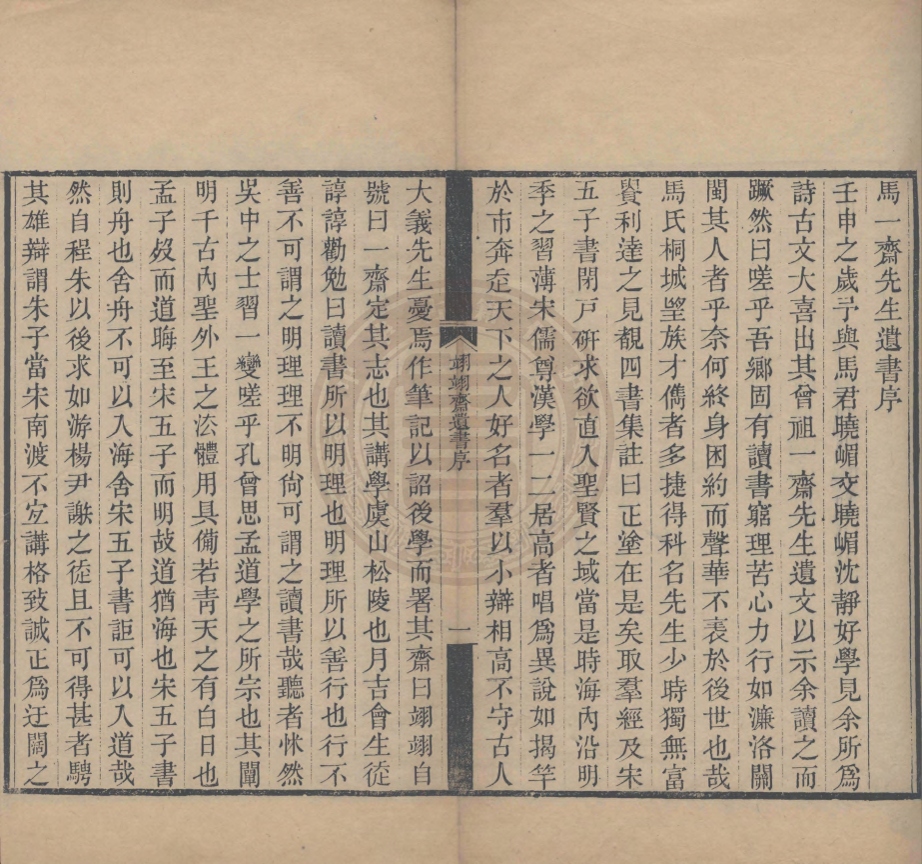 馬一齋先生遺書序
壬申之歲予與馬君曉嵋交曉嵋沈靜好學見余所爲
詩古文大喜出其曾祖一齋先生遺文以示余讀之而
蹶然曰嗟乎吾鄉固有讀書窮理苦心力行如濂洛關
閩其人者乎奈何終身困約而聲華不表於後世也哉
馬氏桐城望族才儁者多捷得科名先生少時獨無富
貴利達之見覩四書集註曰正塗在是矣取羣經及宋
五子書閉戸硏求欲直入聖賢之域當是時海內沿明
季之習薄宋儒尊漢學一二居高者唱爲異說如揭竿
於市奔走天下之人好名者羣以小辯相高不守古人
翊翊齋遺書序
一
大義先生憂焉作筆記以詔後學而署其齋曰翊翊自
號曰一齋定其志也其講學虞山松陵也月吉會生徒
諄諄勸勉曰讀書所以明理也明理所以善行也行不
善不可謂之明理理不明尙可謂之讀書哉聽者怵然
吳中之士習一變嗟乎孔曾思孟道學之所宗也其闡
明千古內聖外王之法體用具備若靑天之有白日也
孟子歿而道晦至宋五子而明故道猶海也宋五子書
則舟也舍舟不可以入海舍宋五子書詎可以入道哉
然自程朱以後求如游楊尹謝之徒且不可得甚者騁
其雄辯謂朱子當宋南渡不宜講格致誠正爲迂闊之